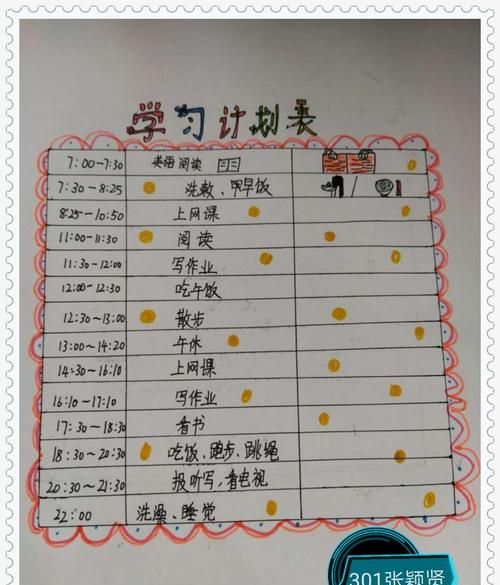 学习计划表
7:00-7:30 英语阅读
7:30~8:25 洗漱、早饭
8:25-10:50 上网课
11:00-11:30 阅读
11:30~12:00 写作业
12:00-12:30 吃午饭
12:30~13:00 散步
13:00~14:20 午休
14:30~16:10 上网课
16:10~17:10 写作业
17:30~18:30 看书
18:30~20:30 吃饭、跑步、跳绳
20:30~21:30 报听写,看电视
22:00 洗澡、睡觉
301张颖贤